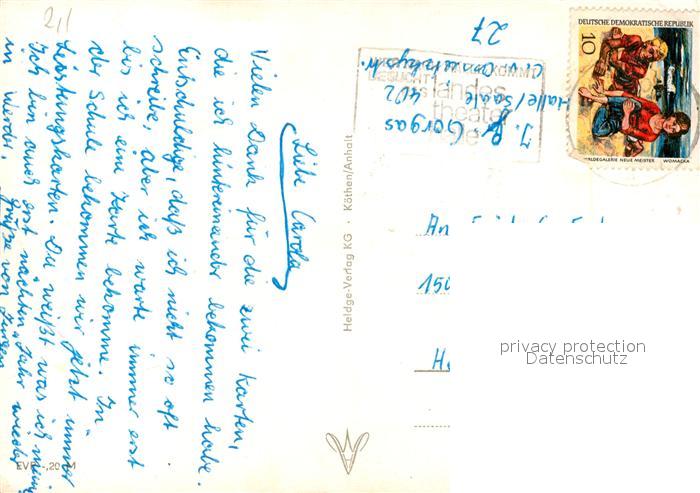 2,1
Liebe Carola
Vielen Dank für die zwei Karten,
die ich hintereinander bekommen habe.
Entschuldige, daß ich nicht so oft
schreibe, aber ich warte immer erst
bis ich eine Karte bekomme. In
der Schule bekommen wir jetzt immer
Leistungskarten. Du weißt was ich meine
Ich bin auch erst nächsten Jahr wieder
in Werder.
Grüße von
EVP -,20 M
Heldge-Verlag KG · Köthen/Anhalt
27
J. Gorgas
402
Halle/Saale
BESUCHT
landes
theater
DEUTSCHE DEMOKRATISCHE REPUBLIK
10
WALDEGALERIE NEUE MEISTER WOMACKA
An
150
privacy protection
Datenschutz